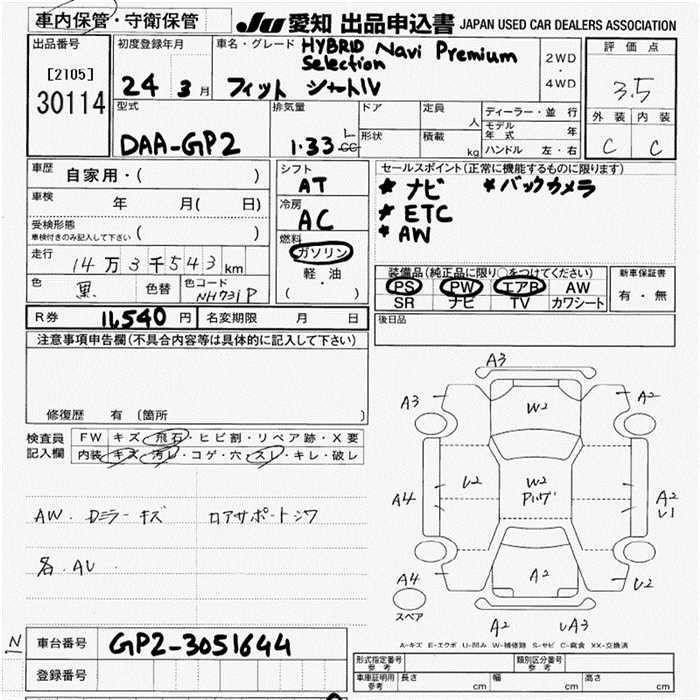 車内保管・守衛保管
JU 愛知 出品申込書 JAPAN USED CAR DEALERS ASSOCIATION
出品番号 初度登録年月 車名・グレード HYBRID Navi Premium Selection 2WD ・ 4WD 評価点
[2105] 30114 24 3月 フィット シャトル 3.5
型式 排気量 ドア 定員 人 ディーラー・並行 外装 内装
DAA-GP2 1.33 L cc 形状 積載 kg モデル年式 年 ハンドル 左・右 C C
車歴 自家用・( )
車検 年 月( 日)
受検形態 車検付きのみ記入して下さい ( )
走行 14万3千543km
色 黒 色替 色コード NH731P
シフト AT
冷房 AC
燃料 ガソリン
軽・油
( ・ )
セールスポイント(正常に機能するものに限ります)
* ナビ * バックカメラ
* ETC
* AW
装備品(純正品に限り○をつけてください) 新車保証書
PS PW エアB AW 有・無
SR ナビ TV カワシート
R券 11,540円 名変期限 月 日
後日品
注意事項申告欄(不具合内容等は具体的に記入して下さい)
修復歴 有 〔箇所 〕
検査員記入欄 FW キズ・飛石・ヒビ割・リペア跡・X要
内装 キズ・汚レ・コゲ・穴・スレ・キレ・破レ
AW.Dミラーキズ ロアサポートシワ
各.AU
A3
A3 W2 A2
A4 U2 W2 Pハゲ A2 U1
A2
A4 U2
スペア A2 UA3
A-キズ E-エクボ U-凹み W-補修跡 S-サビ C-腐食 XX-交換済
N 車台番号 GP2-3051644
登録番号
形式指定番号 参考 類別区分番号 参考
車庫証明用 参考 長さ cm 幅 cm 高さ cm